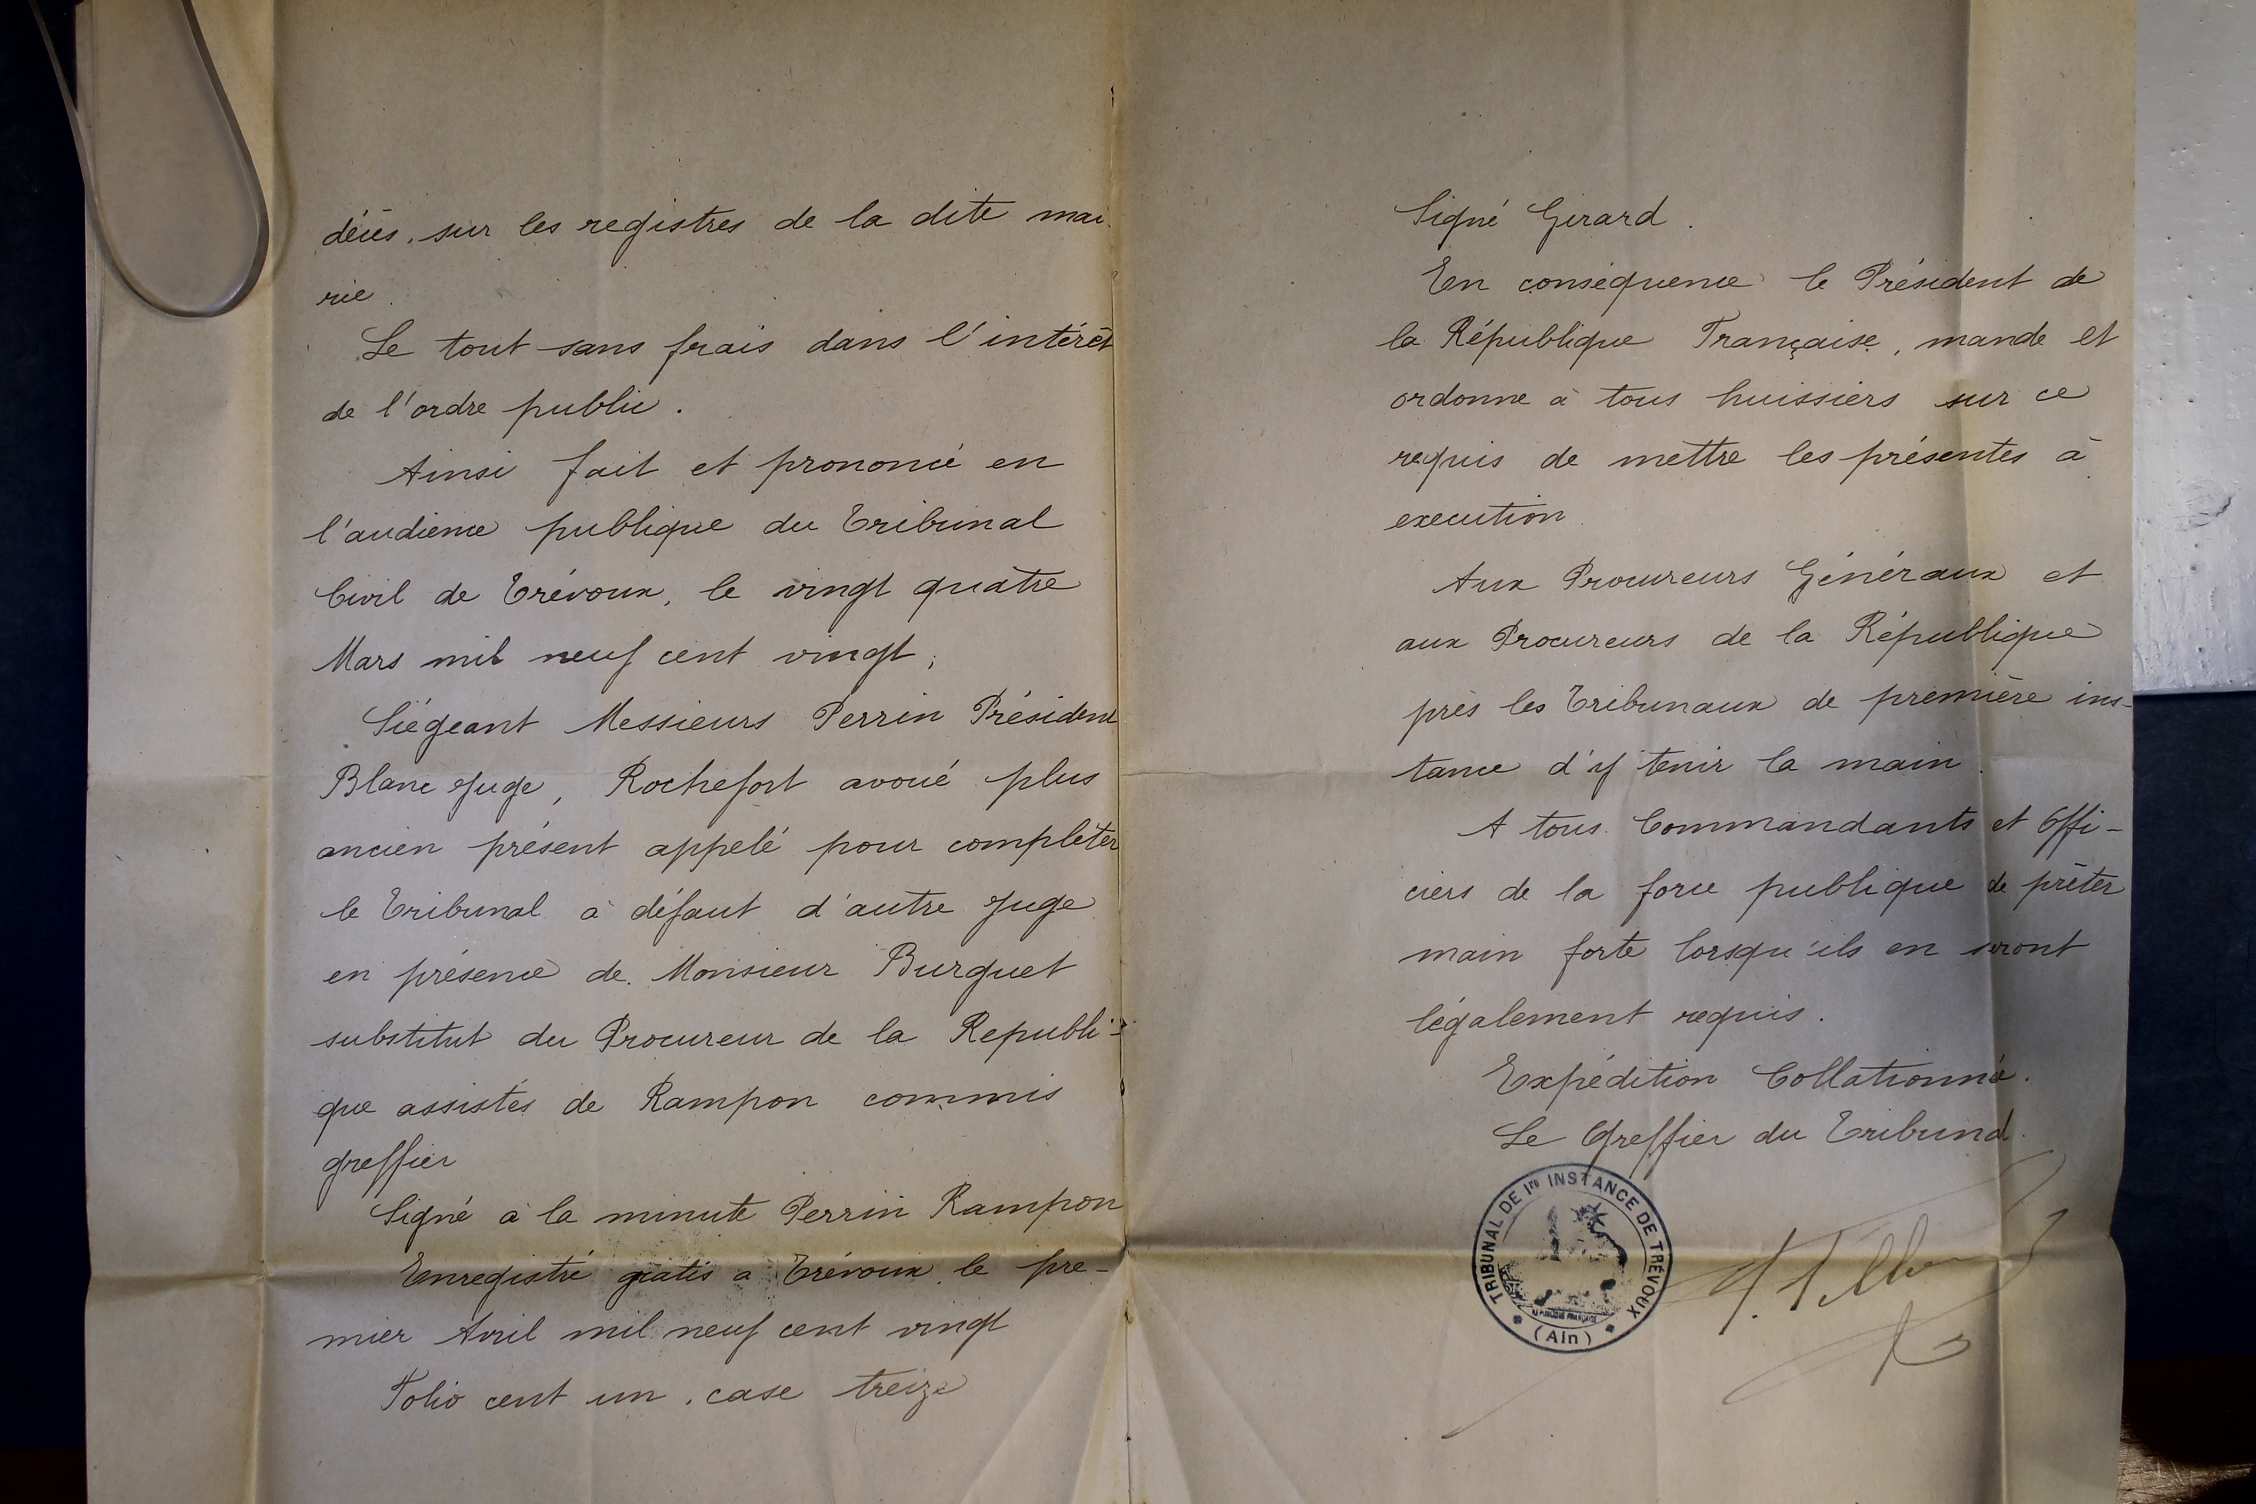 décès, sur les registres de la dite mai
rie.
Le tout sans frais dans l'intérêt
de l'ordre public.
Ainsi fait et prononcé en
l'audience publique du Tribunal
Civil de Trévoux, le vingt quatre
Mars mil neuf cent vingt;
Siégeant Messieurs Perrin Président
Blanc Juge, Rochefort avoué plus
ancien présent appelé pour compléter
le Tribunal à défaut d'autre Juge
en présence de Monsieur Burguet
substitut du Procureur de la Republi-
que assistés de Rampon commis
greffier
Signé à la minute Perrin Rampon
Enregistré gratis a Trévoux le pre-
mier Avril mil neuf cent vingt
Folio cent un, case treize
Signé Girard.
En conséquence le Président de
la République Française, mande et
ordonne à tous huissiers sur ce
requis de mettre les présentes à
execution.
Aux Procureurs Généraux et
aux Procureurs de la République
près les Tribunaux de première ins-
tance d'y tenir la main.
A tous Commandants et Offi-
ciers de la force publique de prêter
main forte lorsqu'ils en seront
légalement requis.
Expédition Collationné.
Le Greffier du Tribunal.
TRIBUNAL DE Ire INSTANCE DE TRÉVOUX
(Ain)